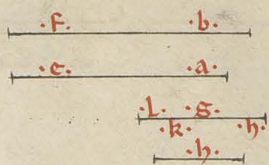 ·f· ·b·
·e· ·a·
·l· ·g·
·k· ·h·
·h·